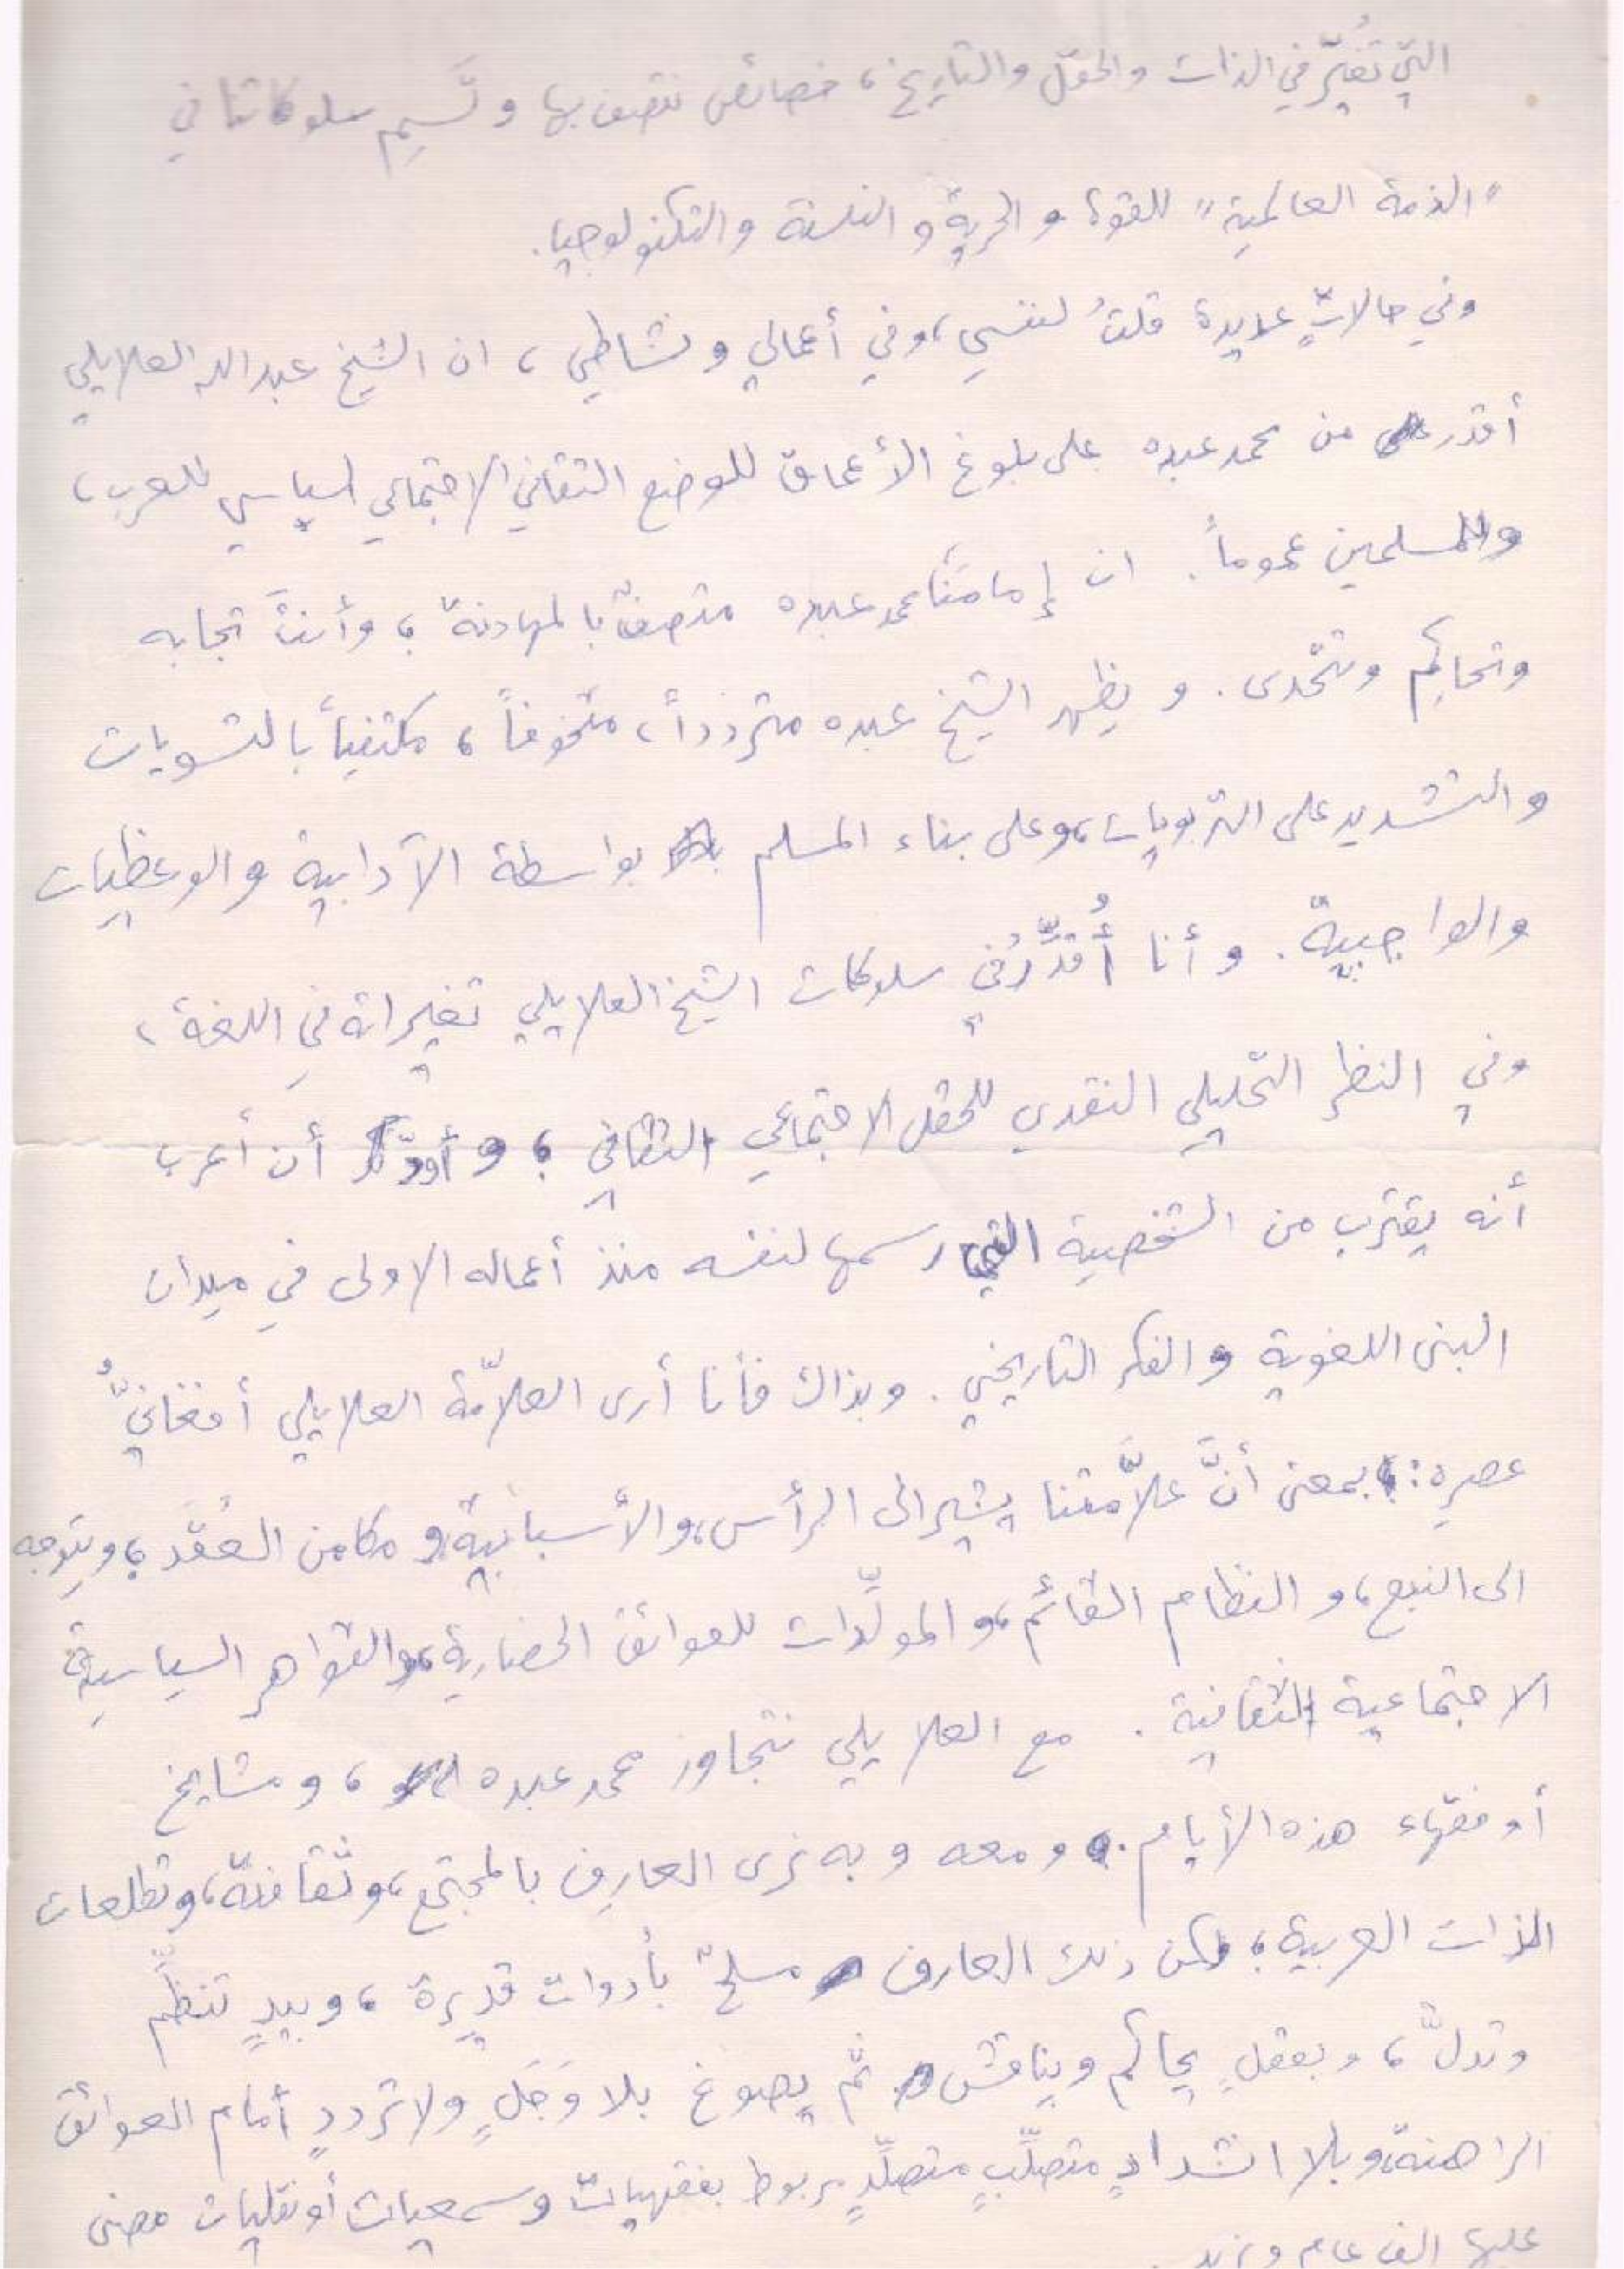 التي تُغيّر في الذات والحقل والتاريخ، خصائص نتصف بها وتَسِم سلوكاتنا في
"الذمة العالمية" للقوة والحرية والفلسفة والتكنولوجيا.
وفي حالاتٍ عديدة قلتُ لنفسي، وفي أعمالي ونشاطي، ان الشيخ عبدالله العلايلي
أقدر من محمد عبده على بلوغ الأعماق للوضع الثقافي الاجتماعي السياسي للعرب،
والمسلمين عموماً. ان إمامَنا محمد عبده متصفٌ بالمهادنة؛ وأنتَ تجابه
وتحاكِم وتتحدى. ويظهر الشيخ عبده متردداً، متخوفاً، مكتفياً بالتسويات
والتشديد على التربويات، وعلى بناء المسلم بواسطة الآدابية والوعظيات
والواجبيّة. وأنا أُقدِّرُ في سلوكات الشيخ العلايلي تغييراته في اللغة،
وفي النظر التحليلي النقدي للحقل الاجتماعي الثقافي؛ وأودّ أن أعرب
أنه يقترب من الشخصية التي رسمها لنفسه منذ أعماله الاولى في ميدان
البنى اللغوية والفكر التاريخي. وبذاك فأنا أرى العلاّمة العلايلي أفغانيُّ
عصرِه: بمعنى أنَّ علاّمَتنا يشير الى الرأس، والأسبابيّة، ومكامن العُقَد؛ ويتوجه
الى النبع، والنظام القائم، والمولِّدات للعوائق الحضارية، والقواهر السياسية
الاجتماعية الثقافية. مع العلايلي نتجاوز محمد عبده، ومشايخ
أو فقهاء هذه الأيام. ومعه وبه نرى العارِف بالمجتمع، وثقافته، وتطلعات
الذات العربية؛ لكن ذلك العارف مسلحٌ بأدوات قديرة، وبيدٍ تنظِّم
وتدلُّ، وبعقلٍ يحاكم ويناقش ثمّ يصوغ بلا وَجَلٍ ولا ترددٍ أمام العوائق
الراهنة، وبلا انشدادٍ متصلِّبٍ متصلِّدٍ مربوط بفقهياتٍ وسمعيات أو نقليات مضى
عليها الف عام ونيف.